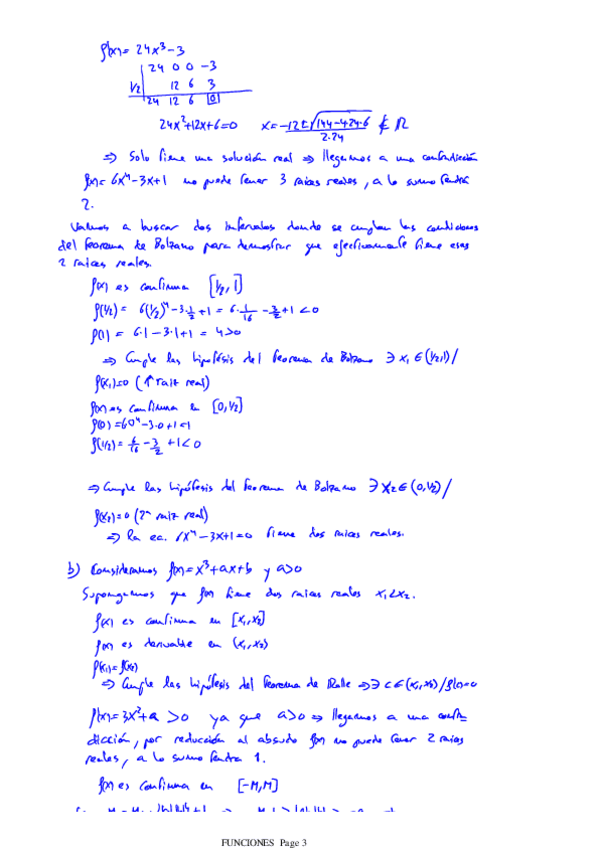 f'(x) = 24x³-3
24 0 0 -3
1/2 12 6 3
24 12 6 0
24x²+12x+6=0 x = -12±√144-4·24·6 / 2·24 ∉ ℝ
⇒ Solo tiene una solución real ⇒ llegamos a una contradicción
f(x)= 6x⁴-3x+1 no puede tener 3 raices reales, a lo sumo tendrá
2.
Vamos a buscar dos intervalos donde se cumplan las condiciones
del teorema de Bolzano para demostrar que efectivamente tiene esas
2 raices reales.
f(x) es continua [1/2, 1]
f(1/2) = 6(1/2)⁴-3·1/2+1 = 6·1/16 - 3/2 +1 <0
f(1) = 6·1-3·1+1 = 4>0
⇒ Cumple las hipótesis del teorema de Bolzano ∃ x₁ ∈ (1/2,1)/
f(x₁)=0 (1ª raiz real)
f(x) es continua en [0,1/2]
f(0)=6·0⁴-3·0+1=1
f(1/2)= 6/16 - 3/2 +1<0
⇒ Cumple las hipótesis del teorema de Bolzano ∃ x₂ ∈ (0,1/2)/
f(x₂)=0 (2ª raiz real)
⇒ la ec. 6x⁴-3x+1=0 tiene dos raices reales.
b) Consideramos f(x)=x³+ax+b y a>0
Supongamos que f(x) tiene dos raices reales x₁<x₂.
f(x) es continua en [x₁,x₂]
f(x) es derivable en (x₁,x₂)
f(x₁)=f(x₂)
⇒ Cumple las hipótesis del teorema de Rolle ⇒ ∃ c ∈ (x₁,x₂)/f'(c)=0
f'(x)=3x²+a >0 ya que a>0 ⇒ llegamos a una contra-
dicción, por reducción al absurdo f(x) no puede tener 2 raices
reales, a lo sumo tendrá 1.
f(x) es continua en [-M,M]
FUNCIONES Page 3